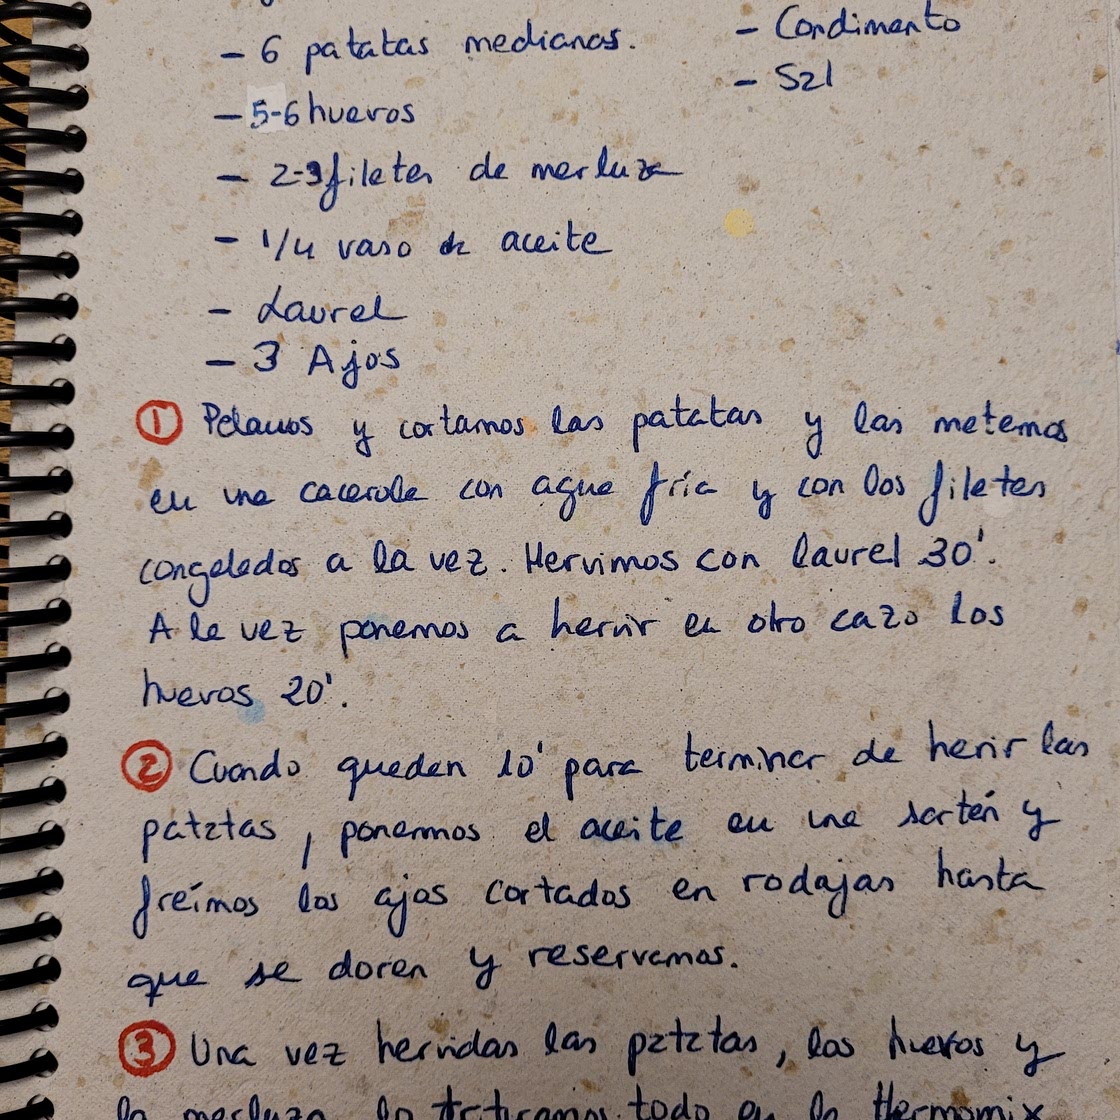 - 6 patatas medianas.
- Condimento
- Sal
- 5-6 huevos
- 2-3 filetes de merluza
- 1/4 vaso de aceite
- Laurel
- 3 Ajos
① Pelamos y cortamos las patatas y las metemos
en una cacerola con agua fría y con los filetes
congelados a la vez. Hervimos con laurel 30'.
A la vez ponemos a hervir en otro cazo los
huevos 20'.
② Cuando queden 10' para terminar de hervir las
patatas, ponermos el aceite en una sartén y
freímos los ajos cortados en rodajas hasta
que se doren y reservamos.
③ Una vez hervidas las patatas, los huevos y
la merluza, lo trituramos todo en la Thermomix